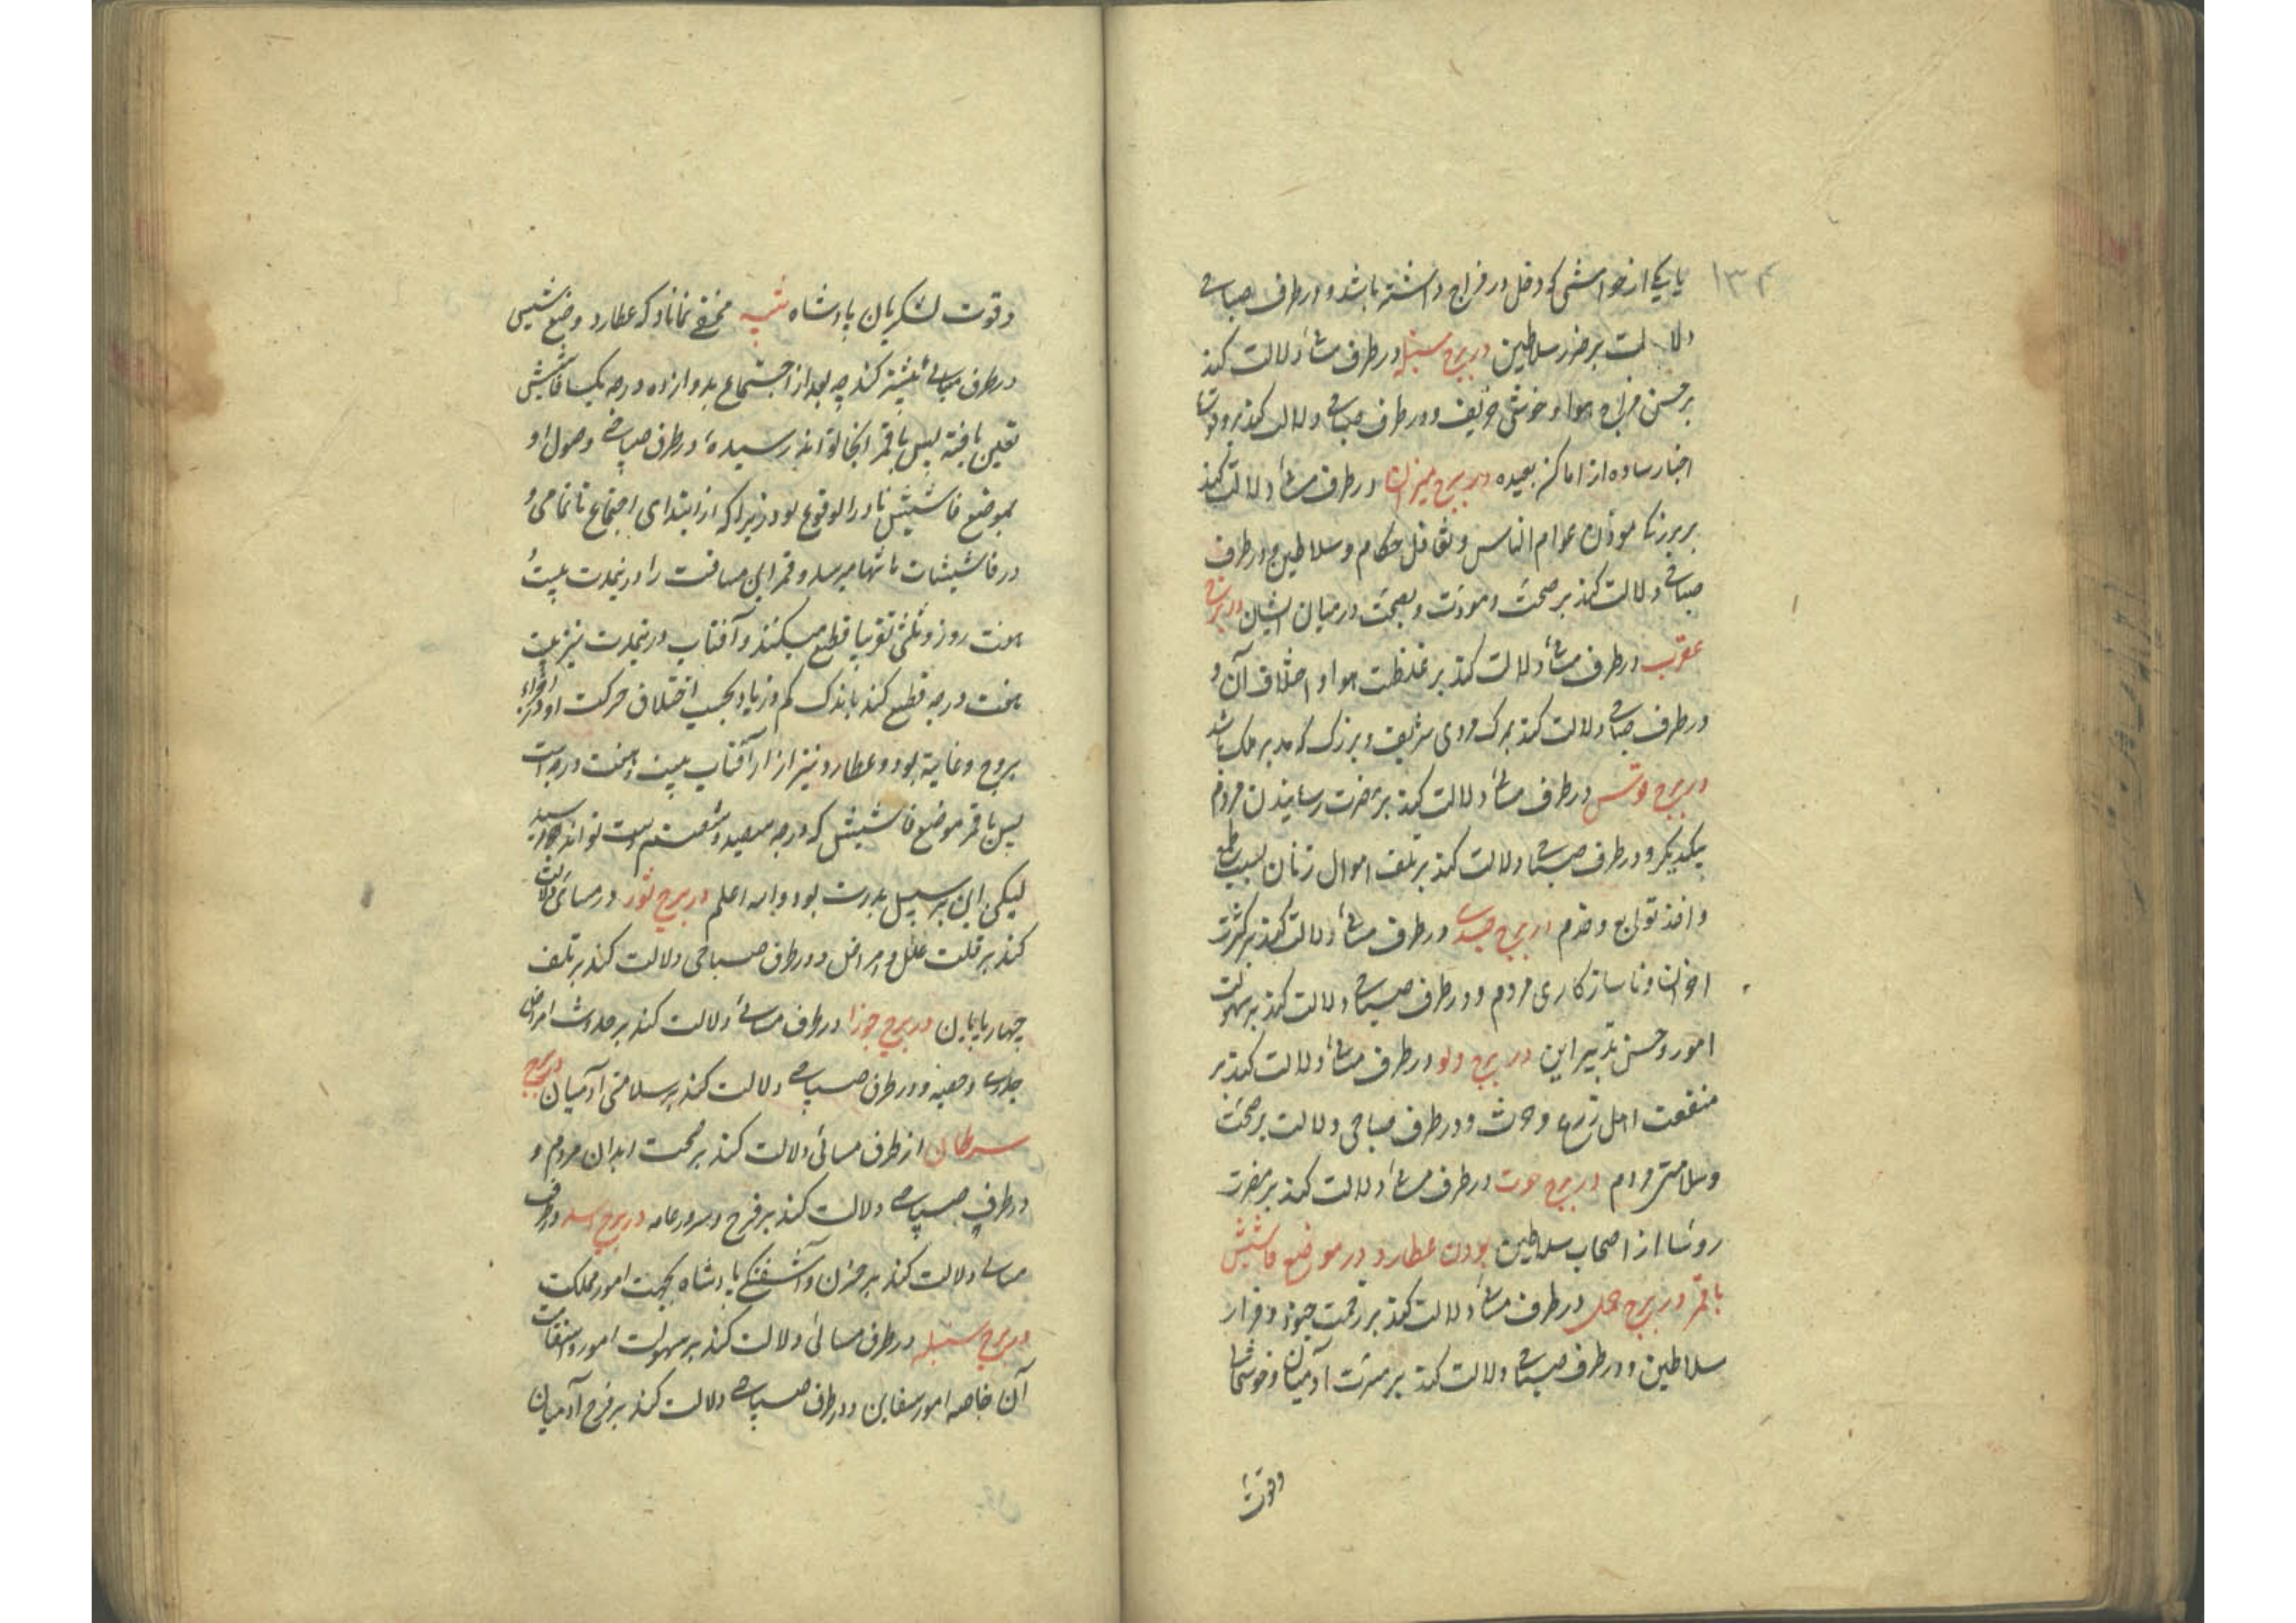 ۱۳۴
یا یکی از خواصش که دخل در مزاج داشته باشد و در طرف صباحی
دلالت بر ضرر سلاطین در برج سنبله در طرف مسائی دلالت کند
بر حسن مزاج هوا و خوشی خریف و در طرف صباحی دلالت کند بر ورود
اخبار ساره از اماکن بعیده در برج میزان در طرف مسائی دلالت کند
بر بزرگ عوام الناس و تغافل حکام و سلاطین و در طرف
صباحی دلالت کند بر صحت و مودت و بهجت در میان ایشان در برج
عقرب در طرف مسائی دلالت کند بر غلظت هوا و اختلاف آن و
در طرف صباحی دلالت کند بمرگ مردی شریف و بزرگ که مدبر ملک باشد
در برج قوس در طرف مسائی دلالت کند بر مضرت رسانیدن مردم
یکدیگر و در طرف صباحی دلالت کند بر تلف اموال زنان بسبب طمع
و اخذ توابع و خدم در برج جدی در طرف مسائی دلالت کند بر کثرت
احزان و ناسازگاری مردم و در طرف صباحی دلالت کند بر سهولت
امور و حسن تدبیر این در برج دلو در طرف مسائی دلالت کند بر
منفعت اهل زرع و حرث و در طرف صباحی دلالت بر صحت
و سلامتی مردم در برج حوت در طرف مسائی دلالت کند بر مضرت
روسا از اصحاب سلاطین بودن عطارد در موضع فاشیش
با قمر در برج حمل در طرف مسائی دلالت کند بر زحمت جنود و فرار
سلاطین و در طرف صباحی دلالت کند بر مسرت آدمیان و خوشحالی
وقوت
وقوت لشکریان پادشاه تنبیه مخفی نماناد که عطارد وضع شیشی
در طرف مسائی بیشتر کند چه بعد از اجتماع بدوازده درجه یکسا فاشیش
تعین یافته پس با قمر آنجا تواند رسید و در طرف صباحی وصول او
بموضع فاشیش نادر الوقوع بود زیرا که از ابتدای اجتماع تا تمامی و
در فاشیشات بانتها میرسد و قمر این مسافت را در نمدت بیست و
هفت روز و ثلثی تقریبا قطع میکند و آفتاب در نمدت نیز بیست
هفت درجه قطع کند باندک کم و زیاد بحسب اختلاف حرکت او در اجزاء
بروج و غایة بعد عطارد نیز از آفتاب بیست و هفت درجه است
پس با قمر موضع فاشیش که درجه سیصد و شصتم است تواند رسید
لیکن این بر سبیل ندرت بود والله اعلم در برج ثور در مسائی دلالت
کند بر قلت علل و امراض و در طرف صباحی دلالت کند بر تلف
چهارپایان در برج جوزا در طرف مسائی دلالت کند بر حدوث امراض
جدری و حصبه و در طرف صباحی دلالت کند بر سلامتی آدمیان در برج
سرطان از طرف مسائی دلالت کند بر صحت ابدان مردم و
در طرف صباحی دلالت کند بر فرح و سرور عامه در برج اسد در طرف
مسائی دلالت کند بر حزن و آشفتگی پادشاه بجهت امور مملکت
در برج سنبله در طرف مسائی دلالت کند بر سهولت امور و استقامت
آن خاصه امور سفاین و در طرف صباحی دلالت کند بر فرح آدمیان